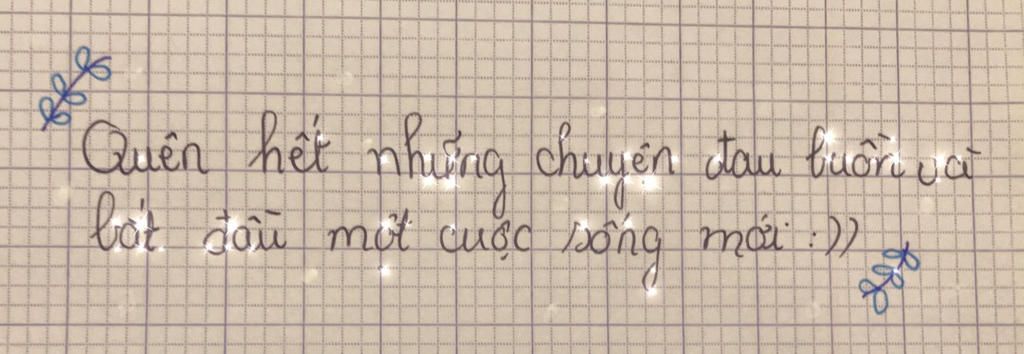 Quên hết những chuyện đau buồn và
bắt đầu một cuộc sống mới :))